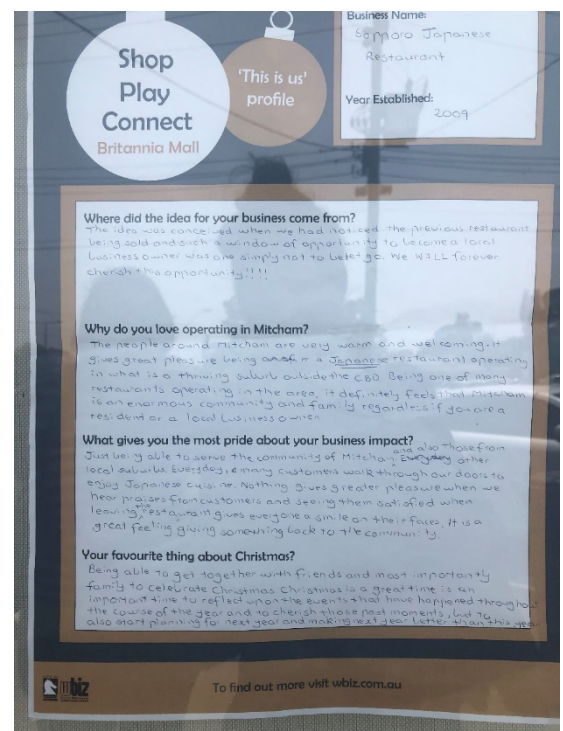 Shop
Play
Connect
Britannia Mall
'This is us'
profile
Business Name:
Sapporo Japanese
Restaurant
Year Established:
2009
Where did the idea for your business come from?
The idea was conceived when we had noticed the previous restaurant
being sold and such a window of opportunity to become a local
business owner was one simply not to be let go. We WILL forever
cherish this opportunity!!!!
Why do you love operating in Mitcham?
The people around Mitcham are very warm and welcoming. It
gives great pleasure being a Japanese restaurant operating
in what is a thriving suburb outside the CBD Being one of many
restaurants operating in the area, it definitely feels that Mitcham
is an enormous community and family regardless if you are a
resident or a local business owner.
What gives you the most pride about your business impact?
Just being able to serve the community of Mitcham and also those from
other
local suburbs. Everyday, many customers walk through our doors to
enjoy Japanese cuisine. Nothing gives greater pleasure when we
hear praises from customers and seeing them satisfied when
leaving, the restaurant gives everyone a smile on their faces. It is a
great feeling giving something back to the community.
Your favourite thing about Christmas?
Being able to get together with friends and most importantly
family to celebrate Christmas Christmas is a great time is an
important time to reflect upon the events that have happened throughout
the course of the year and to cherish those past moments, but to
also start planning for next year and making next year better than this year.
biz
To find out more visit wbiz.com.au